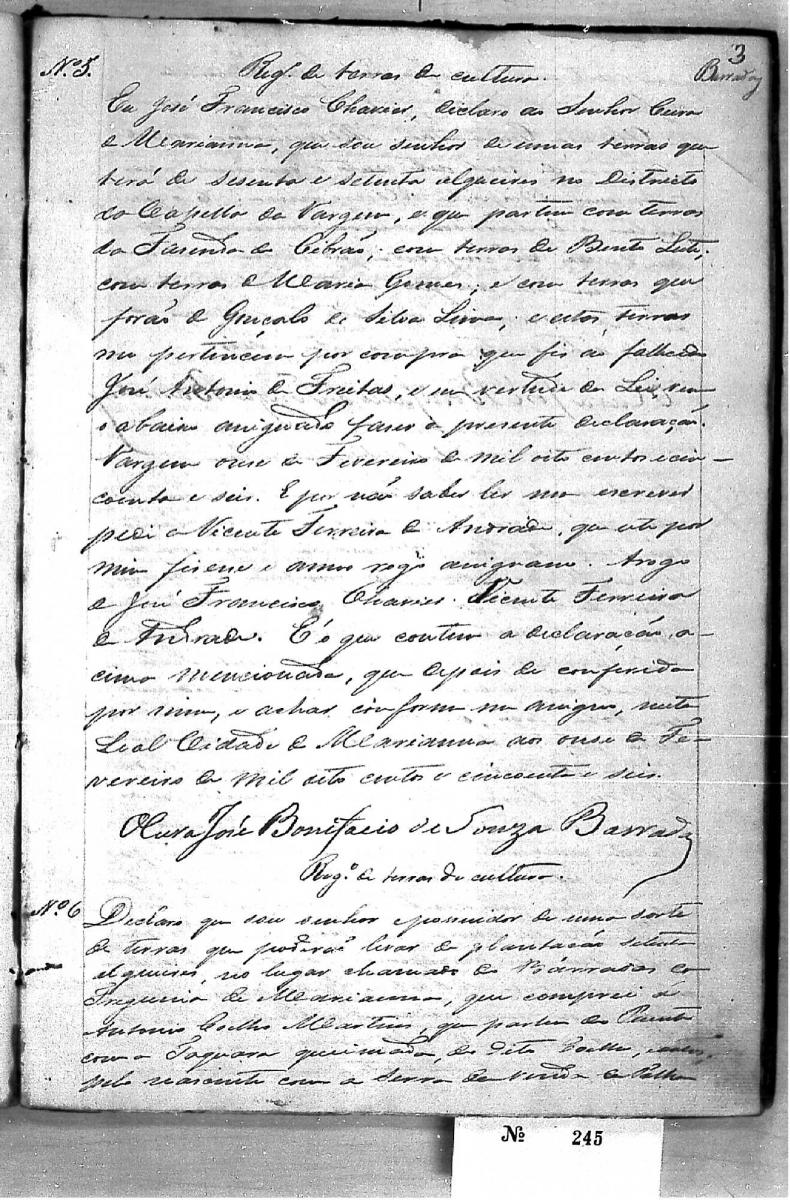 3
Barradas
Nº 5.
Regº. de terras de cultura.
Eu José Francisco Chavier, declaro ao Senhor Cura
de Marianna, que sou senhor de umas terras que
terá de sesenta e setenta alqueires no Districto
da Capella da Vargem, e que partem com terras
da Fasenda do Cibrão; com terras de Bento Leite;
com terras de Maria Gomes; e com terras que
forão de Gonçalo da Silva Lima; e estas terras
me pertencem por compra que fis ao fallecido
José Antonio de Freitas, e em vertude da Lei vem
o abaixo assignado faser a presente declaração.
Vargem onse de Fevereiro de mil oito centos e cin-
coenta e seis. E por não saber ler nem escrever
pedi a Vicente Ferreira de Andrade, que este por
mim fisesse e a meu rogo assignasse. Arogo
de José Francisco Chavier. Vicente Ferreira
de Andrade. É o que contem a declaração, a-
cima mencionada, que depois de conferida
por mim, e achar conforme me assigno, nesta
Leal Cidade de Marianna aos onse de Fe-
vereiro de mil oito centos e cincoenta e seis.
O Cura José Bonifacio de Souza Barradas
Regº. de terras de cultura.
Nº 6
Declaro que sou senhor e possuidor de uma sorte
de terras que poderão levar de plantação setenta
alqueires, no lugar chamado do Barradas da
Freguesia de Marianna, que comprei a
Antonio Coelho Martins, que partem do Poente
com a Taquara queimada, do dito Coelho,
pelo nascente com a Serra da Venda da Palha
Nº 245